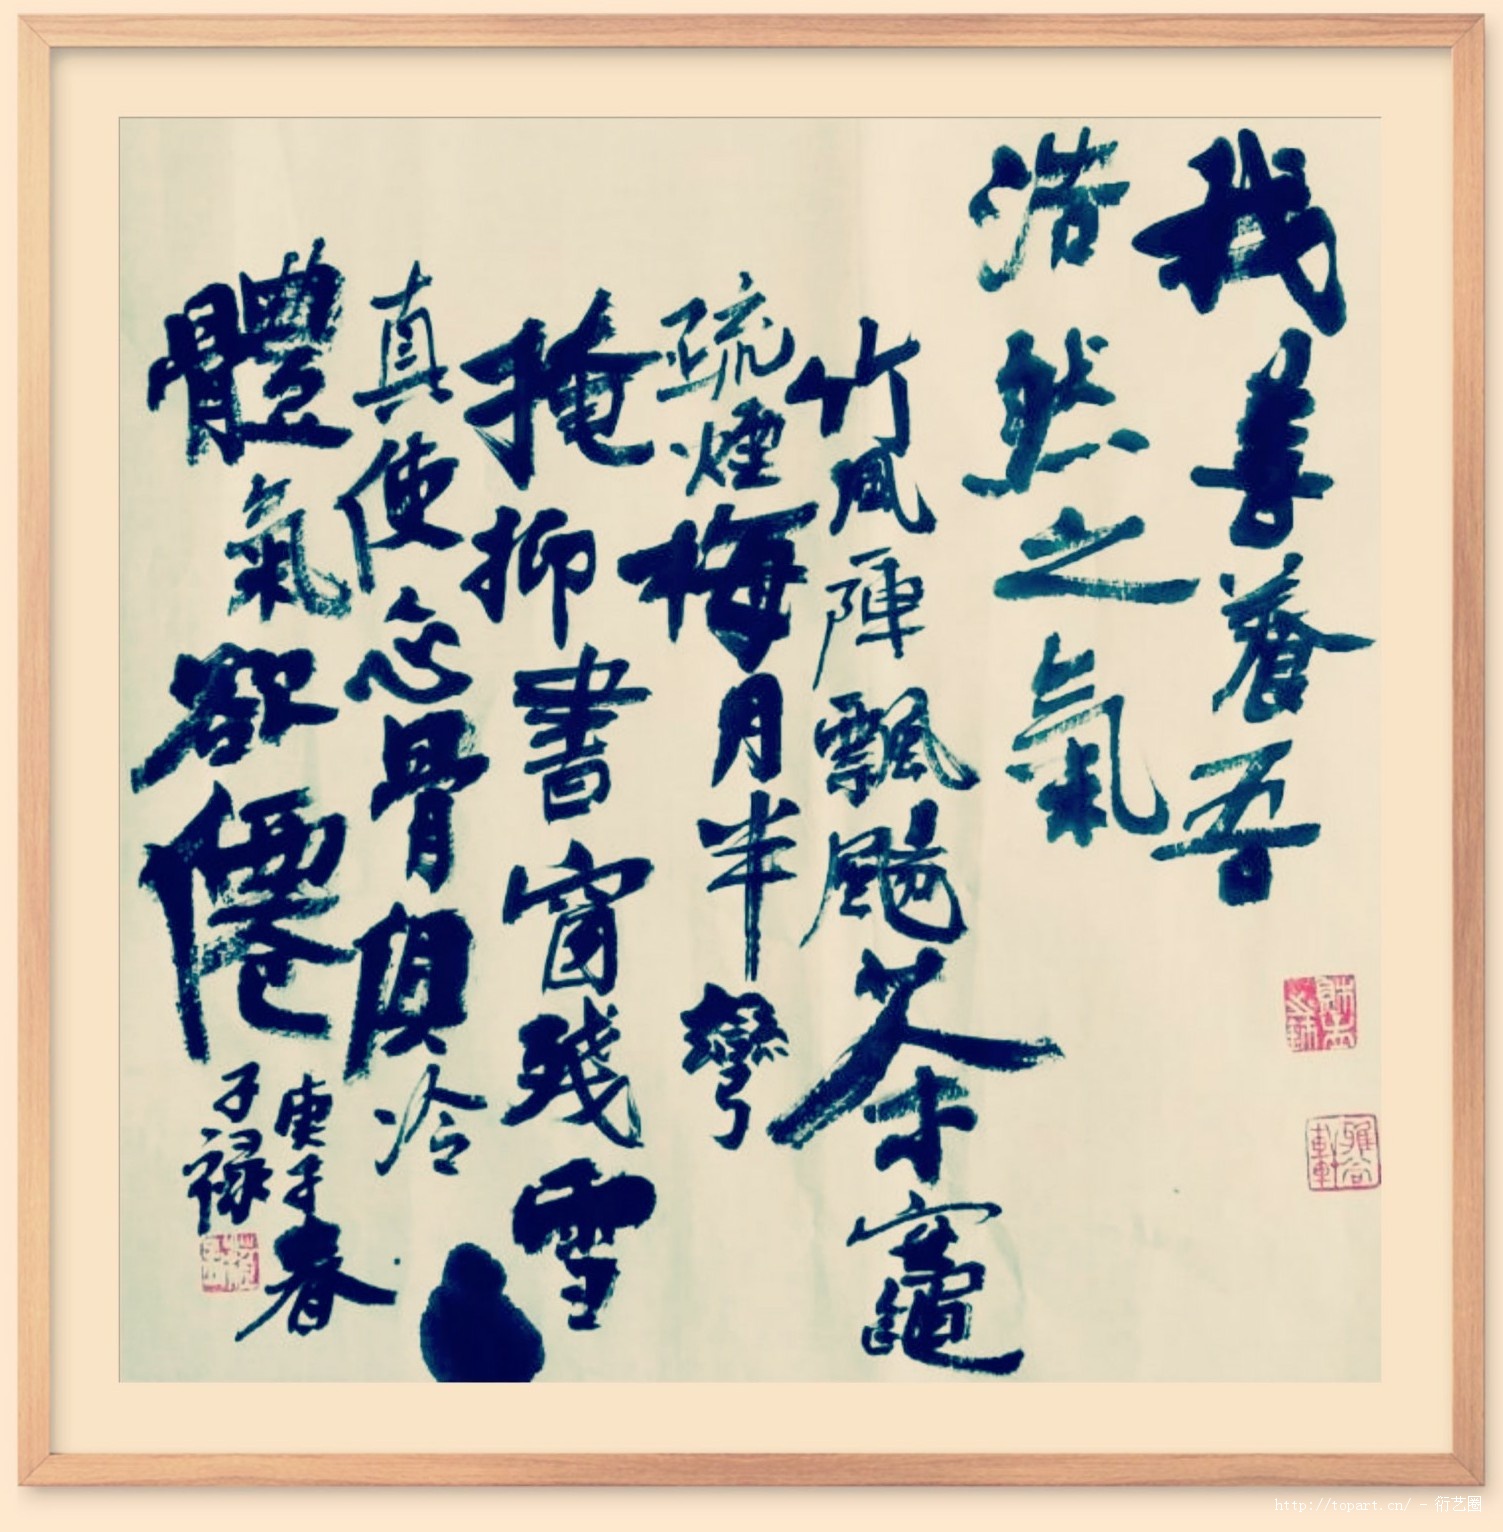 我善養吾
浩然之氣
竹風陣飄颺茶竈
疏煙梅月半彎
掩抑書窗殘雪
真使心骨俱冷
體氣欲僊
庚子春
子禄
雅谷軒
http://topart.cn/ - 衍艺圈